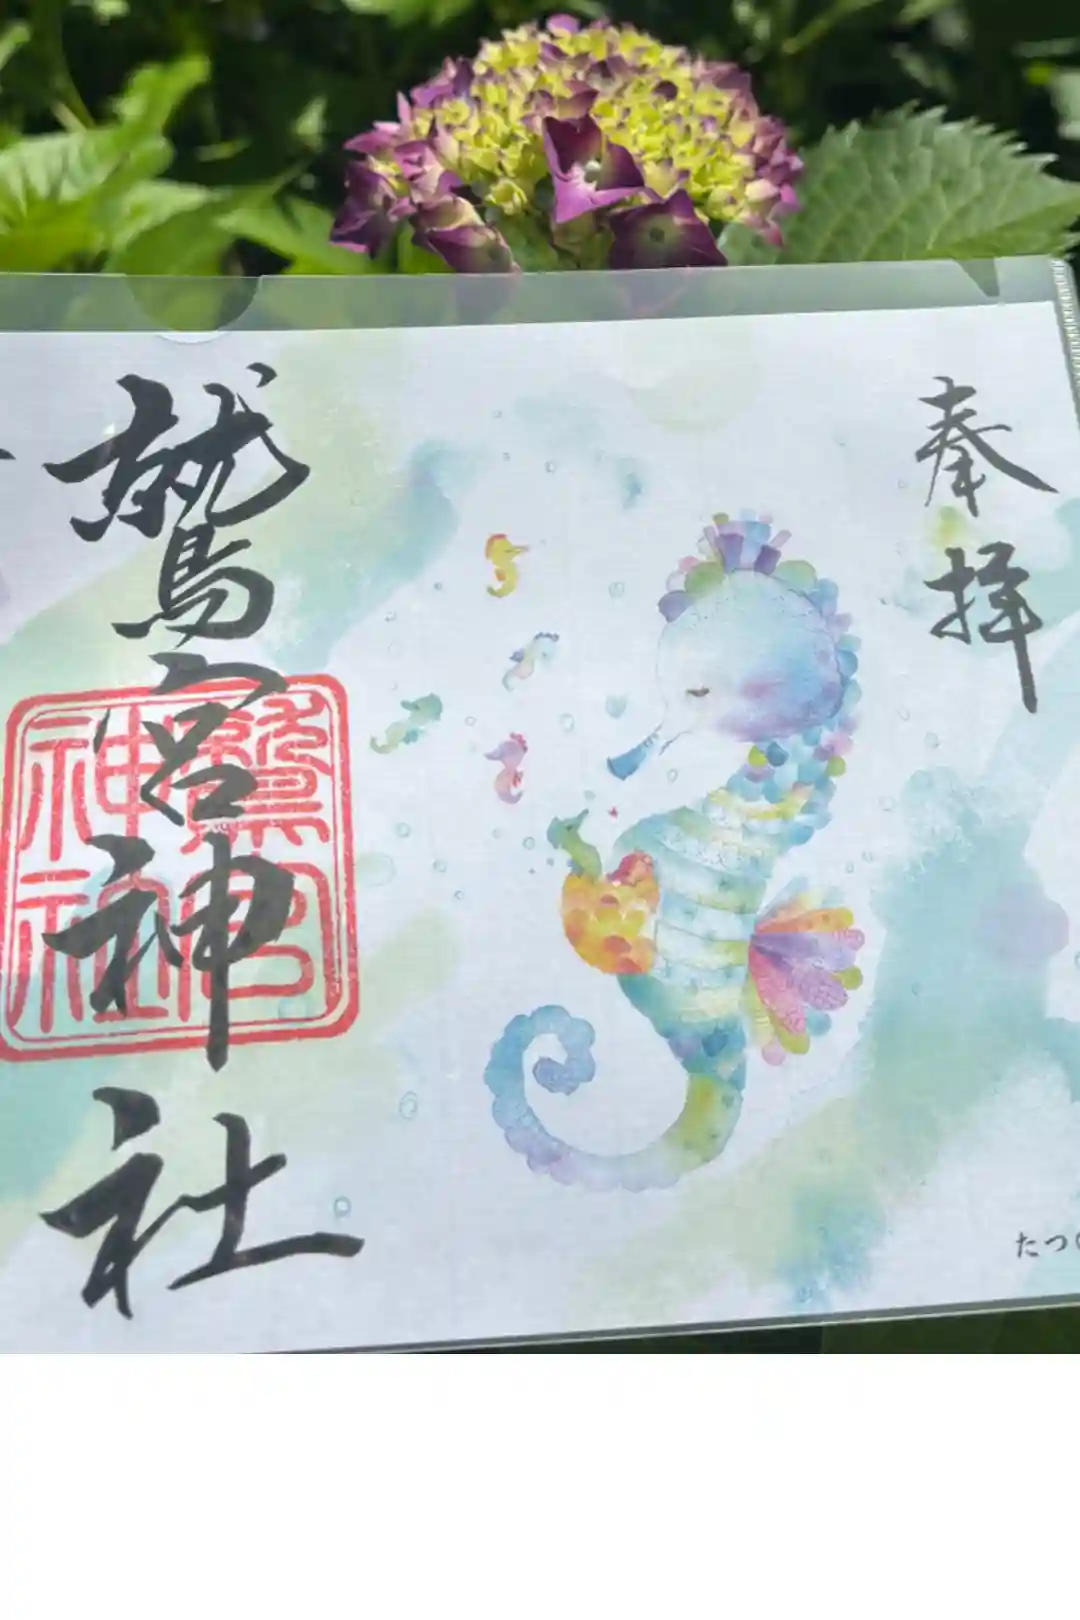 奉拝
たつ
鷲宮神社
鷲宮
神社